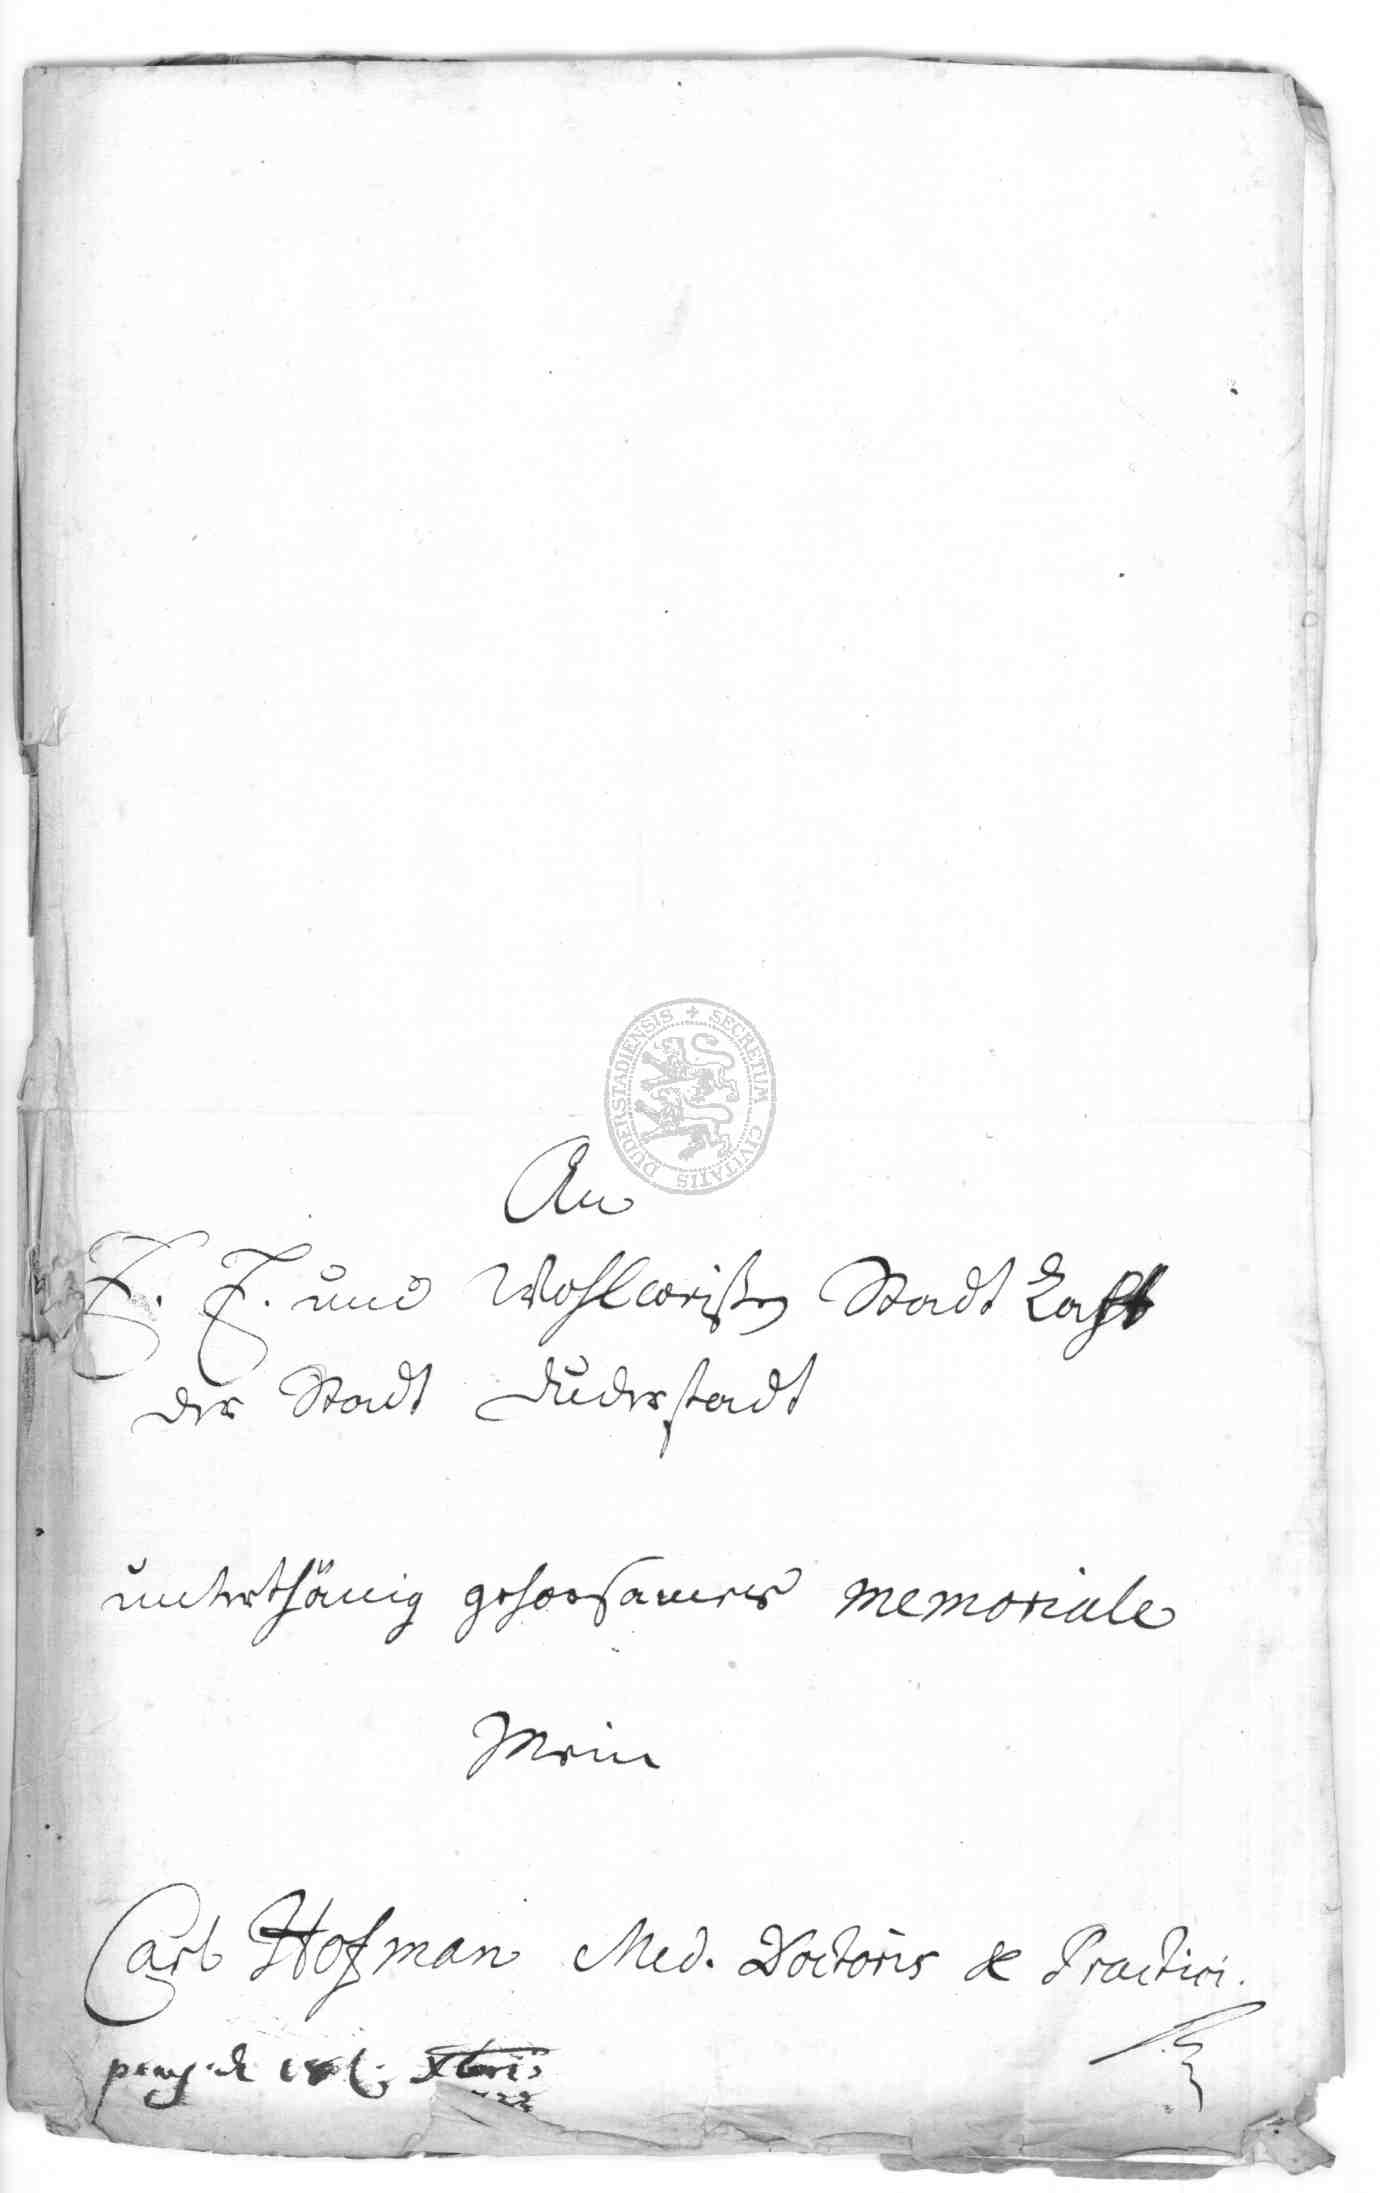 DUDERSTADIENSIS + SECRETUM CIVITATIS
An
E. E. und Wohlweißen Stadt Raht
der Stadt Duderstadt
unterthänig gehorsames memoriale
Mein
Carl Hofman Med. Doctoris & Practici.
Xbris